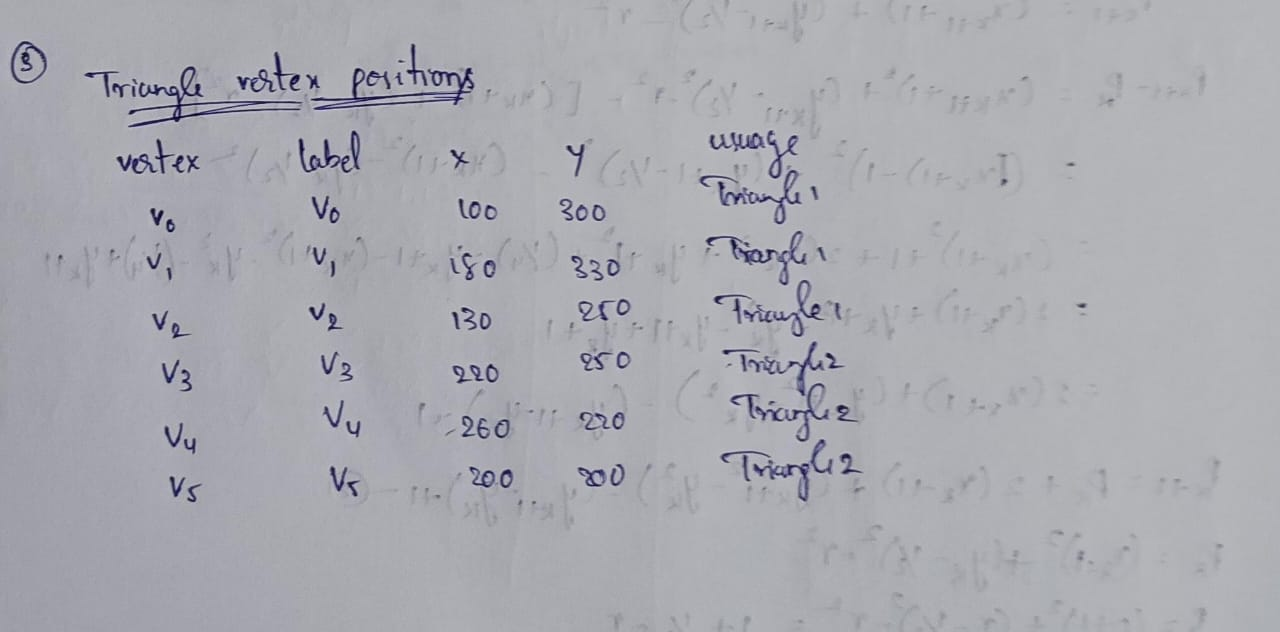 ③
Triangle vertex positions
vertex label x y usuage
V0 V0 100 300 Triangle 1
V1 V1 180 330 Triangle 1
V2 V2 130 250 Triangle 1
V3 V3 220 250 Triangle 2
V4 V4 260 220 Triangle 2
V5 V5 200 200 Triangle 2